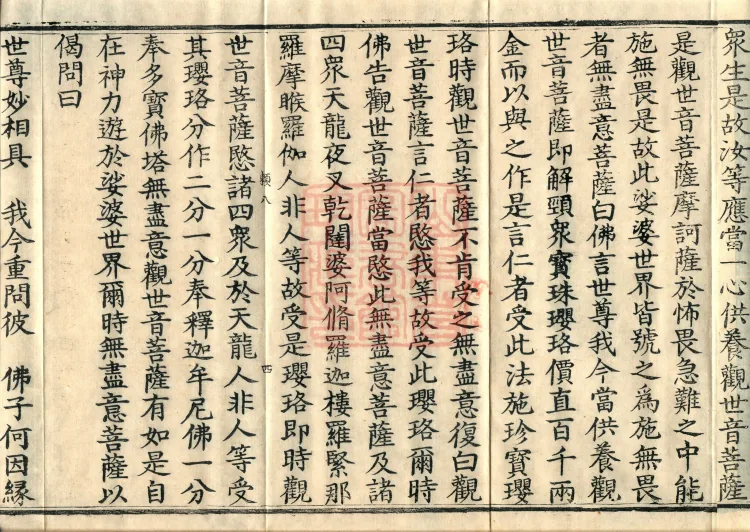 眾生是故汝等應當一心供養觀世音菩薩
是觀世音菩薩摩訶薩於怖畏急難之中能
施無畏是故此娑婆世界皆號之為施無畏
者無盡意菩薩白佛言世尊我今當供養觀
世音菩薩即解頸眾寶珠瓔珞價直百千兩
金而以與之作是言仁者受此法施珍寶瓔
珞時觀世音菩薩不肯受之無盡意復白觀
世音菩薩言仁者愍我等故受此瓔珞爾時
佛告觀世音菩薩當愍此無盡意菩薩及諸
四眾天龍夜叉乾闥婆阿脩羅迦樓羅緊那
羅摩睺羅伽人非人等故受是瓔珞即時觀
世音菩薩愍諸四眾及於天龍人非人等受
其瓔珞分作二分一分奉釋迦牟尼佛一分
奉多寶佛塔無盡意觀世音菩薩有如是自
在神力遊於娑婆世界爾時無盡意菩薩以
偈問曰
世尊妙相具 我今重問彼 佛子何因緣